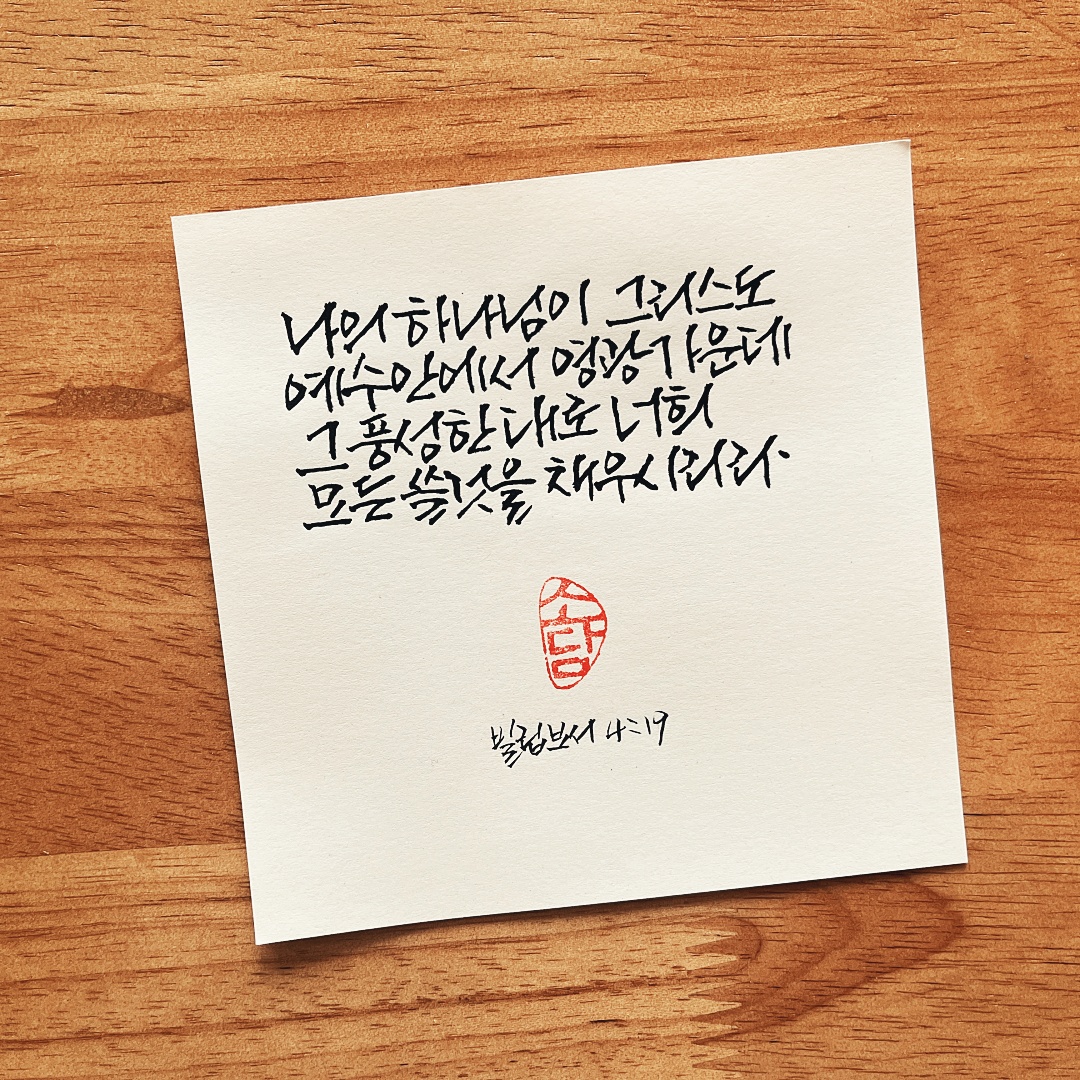 나의 하나님이 그리스도
예수 안에서 영광 가운데
그 풍성한 대로 너희
모든 쓸 것을 채우시리라.
소담
빌립보서 4:19